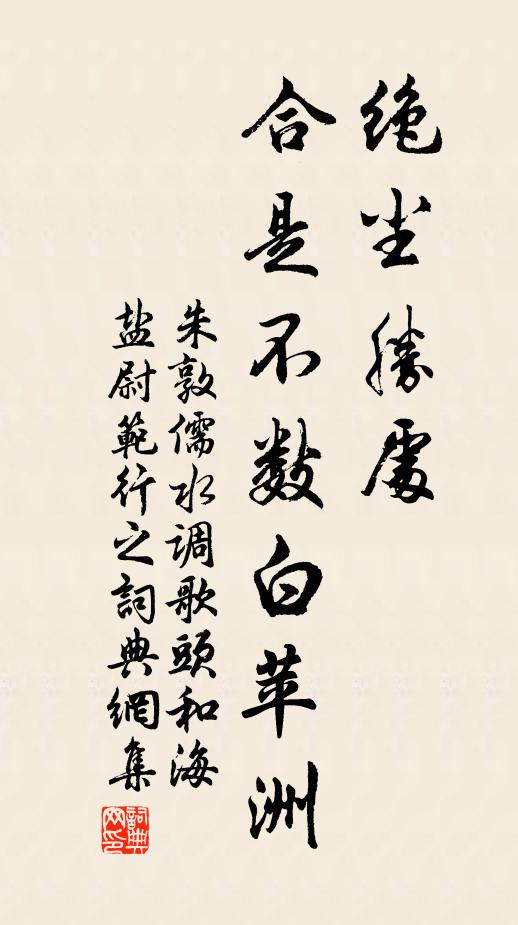 绝尘勝處
合是不数白苹洲
朱敦儒水调歌頭和海
盐尉範行之詞典網集
詞典网印